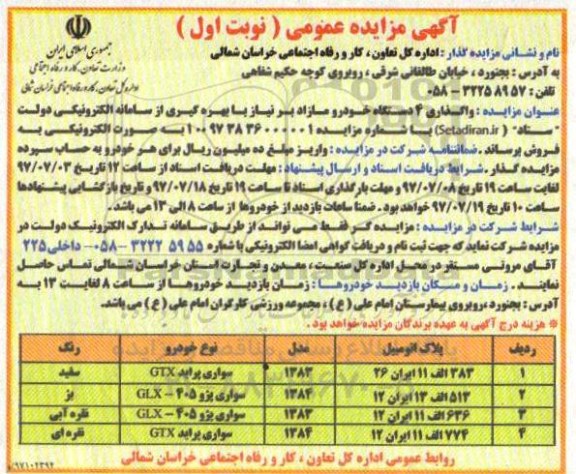 آگهی مزایده عمومی ( نوبت اول )
جمهوری اسلامی ایران
وزارت تعاون، کار و رفاه اجتماعی
اداره کل تعاون، کار و رفاه اجتماعی خراسان شمالی
نام و نشانی مزایده گذار : اداره کل تعاون ، کار و رفاه اجتماعی خراسان شمالی
به آدرس : بجنورد ، خیابان طالقانی شرقی ، روبروی کوچه حکیم شفاهی
تلفن : ۳۲۲۵۸۹۵۷ - ۰۵۸
عنوان مزایده : واگذاری ۴ دستگاه خودرو مازاد بر نیاز با بهره گیری از سامانه الکترونیکی دولت
" ستاد" ( Setadiran.ir) با شماره مزایده ۱۰۰۹۷۳۸۳۶۰۰۰۰۰۱ به صورت الکترونیکی به
فروش برساند . ضمانتنامه شرکت در مزایده : واریز مبلغ ده میلیون ریال برای هر خودرو به حساب سپرده
مزایده گذار . شرایط دریافت اسناد و ارسال پیشنهاد : مهلت دریافت اسناد از ساعت ۱۲ تاریخ ۹۷/۰۷/۰۳
لغایت ساعت ۱۹ تاریخ ۹۷/۰۷/۰۸ و مهلت بارگذاری اسناد تا ساعت ۱۹ تاریخ ۹۷/۰۷/۱۸ و تاریخ بازگشایی پیشنهادها
ساعت ۱۰ تاریخ ۹۷/۰۷/۱۹ خواهد بود . ضمنا ساعات بازدید از خودروها از ساعت ۸ الی ۱۳ می باشد .
شرایط شرکت در مزایده : مزایده گر فقط می تواند از طریق سامانه تدارک الکترونیک دولت در
مزایده شرکت نماید که جهت ثبت نام و دریافت گواهی امضا الکترونیکی با شماره ۵۹۵۵ ۳۲۲۲ -۰۵۸- داخلی۲۲۵
آقای مروتی مستقر در محل اداره کل صنعت ، معدن و تجارت استان خراسان شمالی تماس حاصل
نمایند . زمان و مکان بازدید خودروها : زمان بازدید خودروها از ساعت ۸ لغایت ۱۳ به
آدرس : بجنورد ،روبروی بیمارستان امام علی ( ع ) ، مجموعه ورزشی کارگران امام علی ( ع ) می باشد.
* هزینه درج آگهی به عهده برندگان مزایده خواهد بود .
ردیف پلاک اتومبیل مدل نوع خودرو رنگ
۱ ۳۸۳ الف ۱۱ ایران ۲۶ ۱۳۸۳ سواری پراید GTX سفید
۲ ۵۱۳ الف ۱۳ ایران ۱۲ ۱۳۸۴ سواری پژو ۴۰۵ - GLX بژ
۳ ۶۳۶ الف ۱۱ ایران ۱۲ ۱۳۸۳ سواری پژو ۴۰۵ - GLX نقره آبی
۴ ۷۷۴ الف ۱۱ ایران ۱۲ ۱۳۸۴ سواری پراید GTX نقره ای
روابط عمومی اداره کل تعاون ، کار و رفاه اجتماعی خراسان شمالی